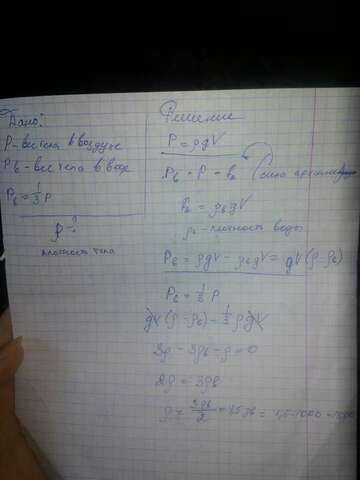 Дано:
P - вес тела в воздухе
Pв - вес тела в воде
Pв = 1/3 P
ρ - ?
плотность тела
Решение
P = ρgV
Pв = P - Fа (сила
Fа = ρвgV
ρв - плотность воды
Pв = ρgV - ρвgV = gV(ρ - ρв)
Pв = 1/3 P
gV(ρ - ρв) = 1/3 ρgV
3ρ - 3ρв - ρ = 0
2ρ = 3ρв
ρ = 3ρв/2 = 1,5ρв = 1,5·1000 =